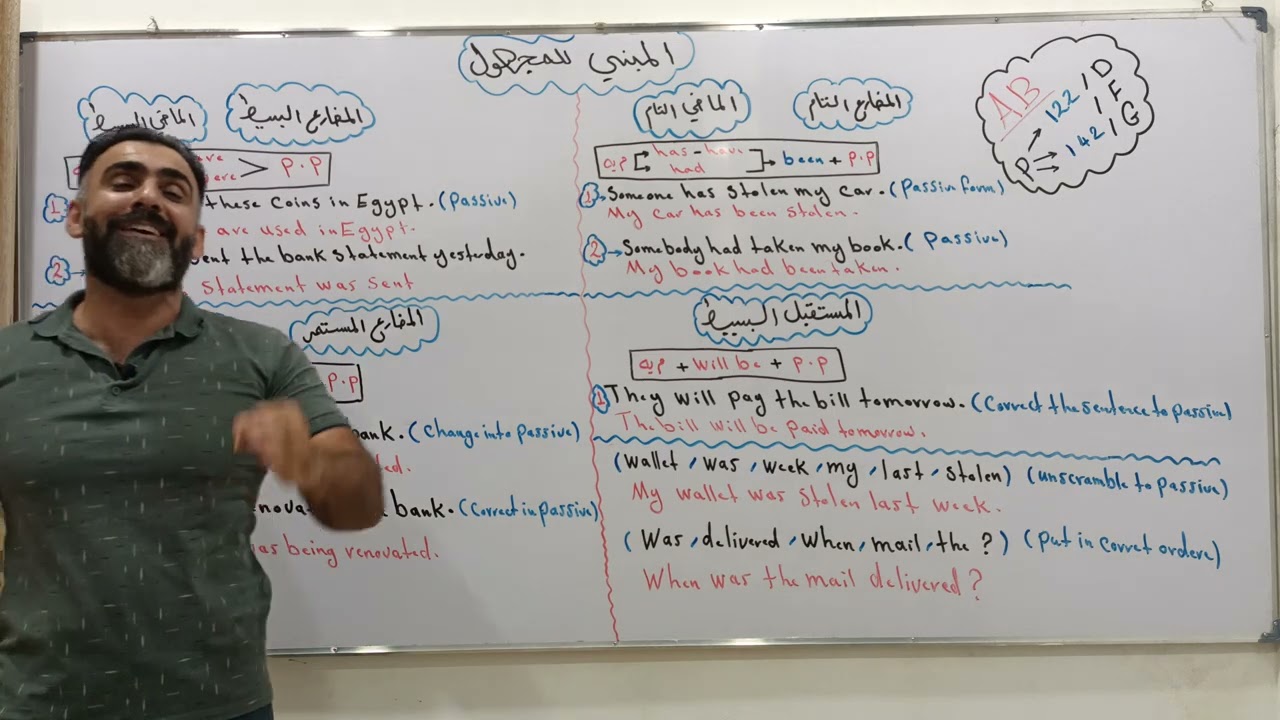 المبني للمجهول
الماضي البسيط
المضارع البسيط
are
ere > P.P
1 these coins in Egypt. (Passive)
are used in Egypt.
2 → ent the bank statement yesterday.
statement was sent
المضارع المستمر
P.P
bank. (Change into Passive)
ed.
enova bank. (Correct in passive)
as being renovated.
الماضي التام
المضارع التام
م به has - have had → been + P.P
1 Someone has stolen my car. (Passive form)
My car has been stolen.
2 → Somebody had taken my book. (Passive)
My book had been taken.
المستقبل البسيط
م به + will be + P.P
1 They will pay the bill tomorrow. (Correct the sentence to passive)
The bill will be paid tomorrow.
(wallet, was, week, my, last, stolen) (unscramble to passive)
My wallet was stolen last week.
(Was, delivered, when, mail, the ?) (put in corret ordere)
When was the mail delivered?
AB
P → 122 / D
/ F
142 / G